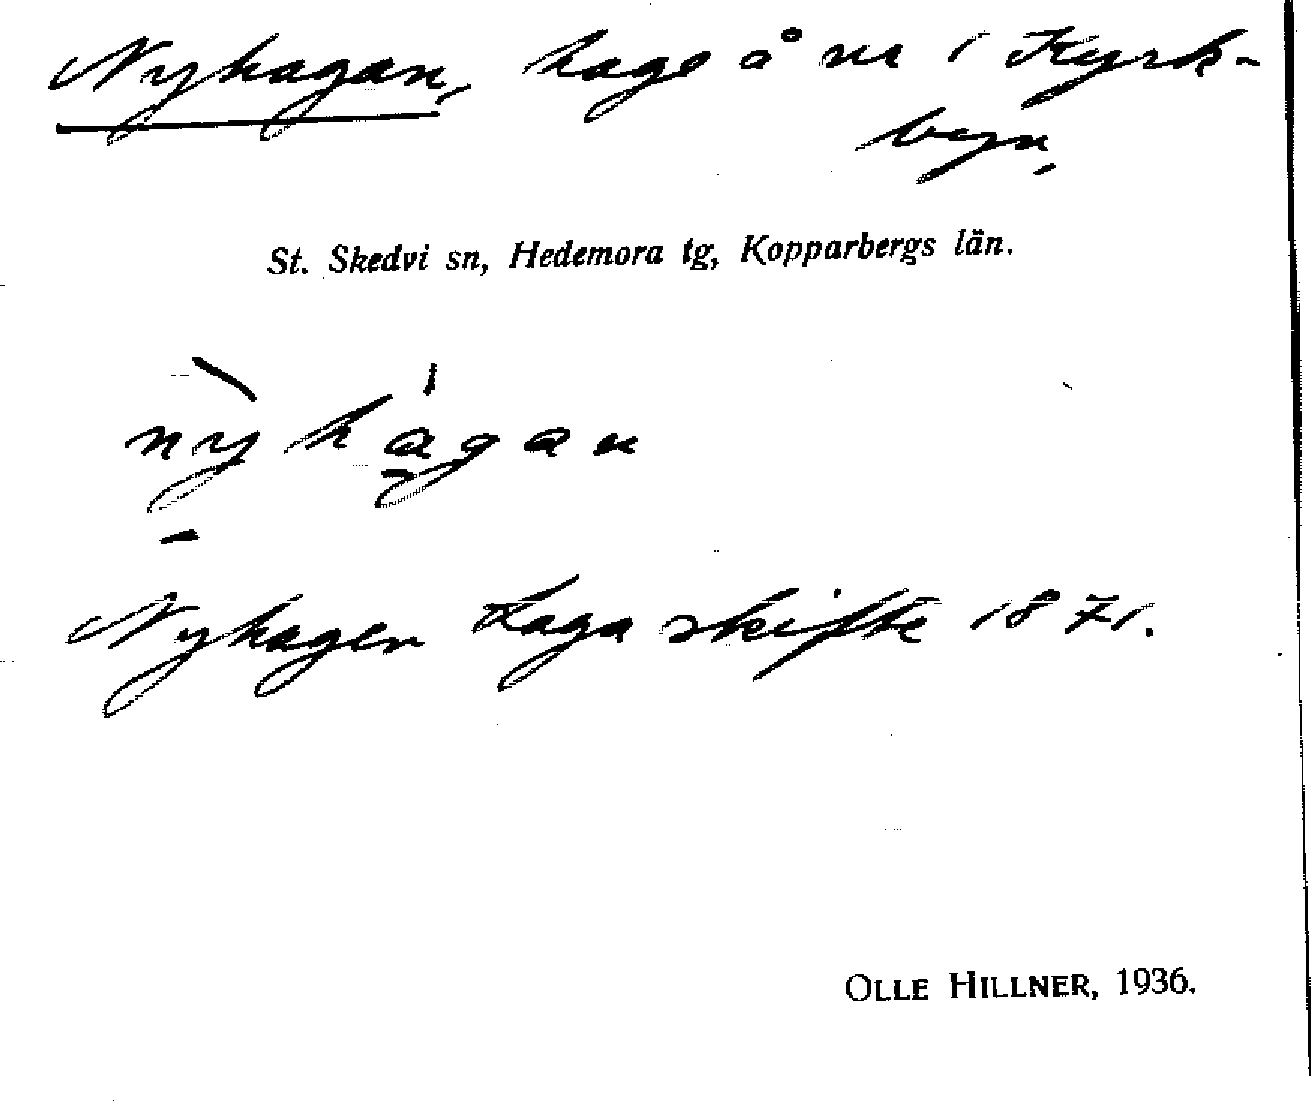 Nyhagan, hage å nr 1 Kyrk-
byn.
St. Skedvi sn, Hedemora tg, Kopparbergs län.
nỳhágan
Nyhagen Laga skifte 1871.
OLLE HILLNER, 1936.